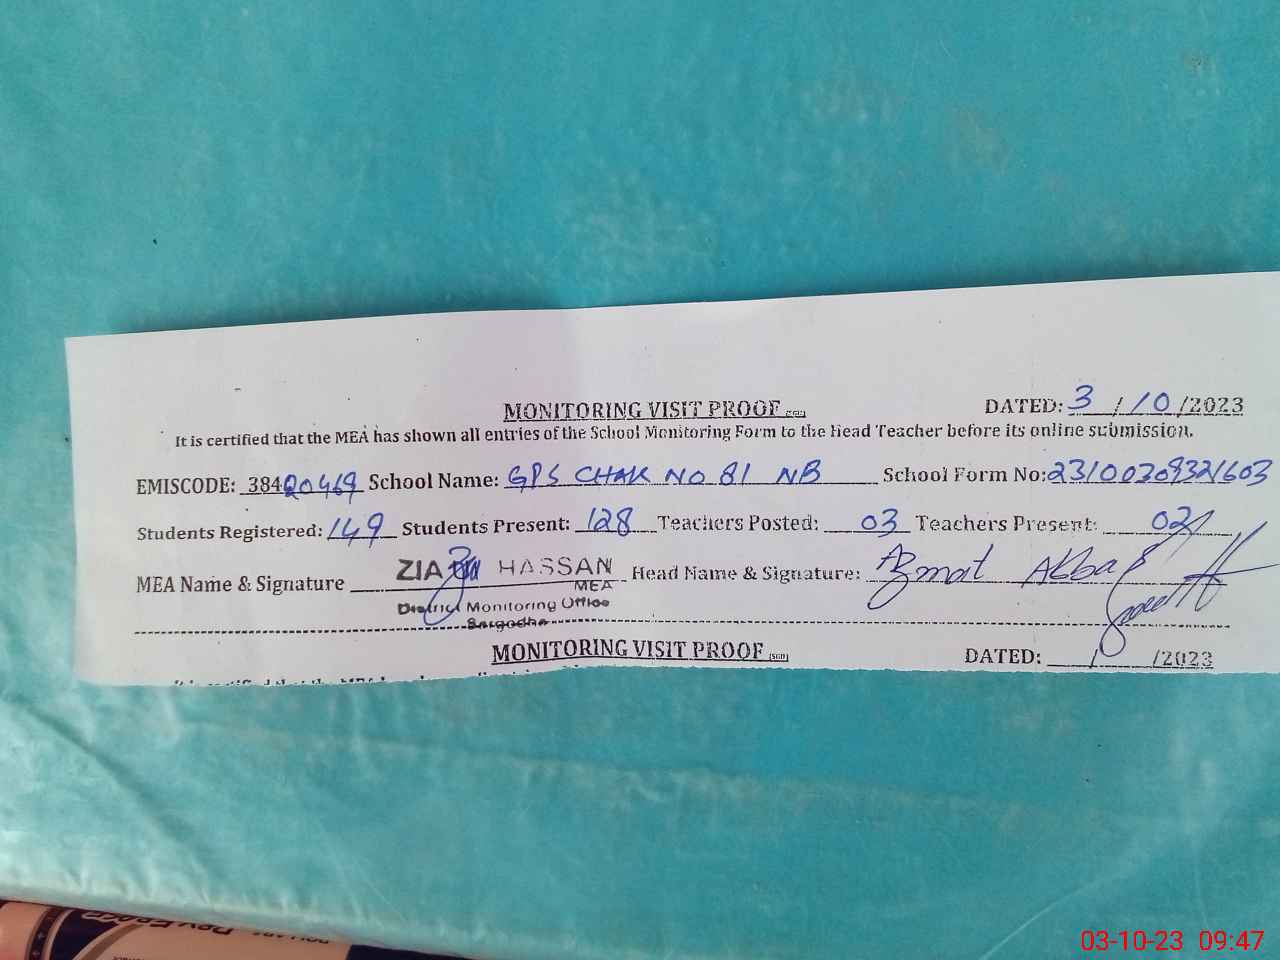 MONITORING VISIT PROOF (SGD) DATED: 3/10/2023
It is certified that the MEA has shown all entries of the School Monitoring Form to the Head Teacher before its online submission.
EMISCODE: 38420469 School Name: GPS CHAK NO 81 NB School Form No: 23100309321603
Students Registered: 149 Students Present: 128 Teachers Posted: 03 Teachers Present: 02
MEA Name & Signature ZIA HASSAN Head Name & Signature: Azmat Abbas
MEA
District Monitoring Office
Sargodha
MONITORING VISIT PROOF (SGD) DATED: / /2023
03-10-23 09:47